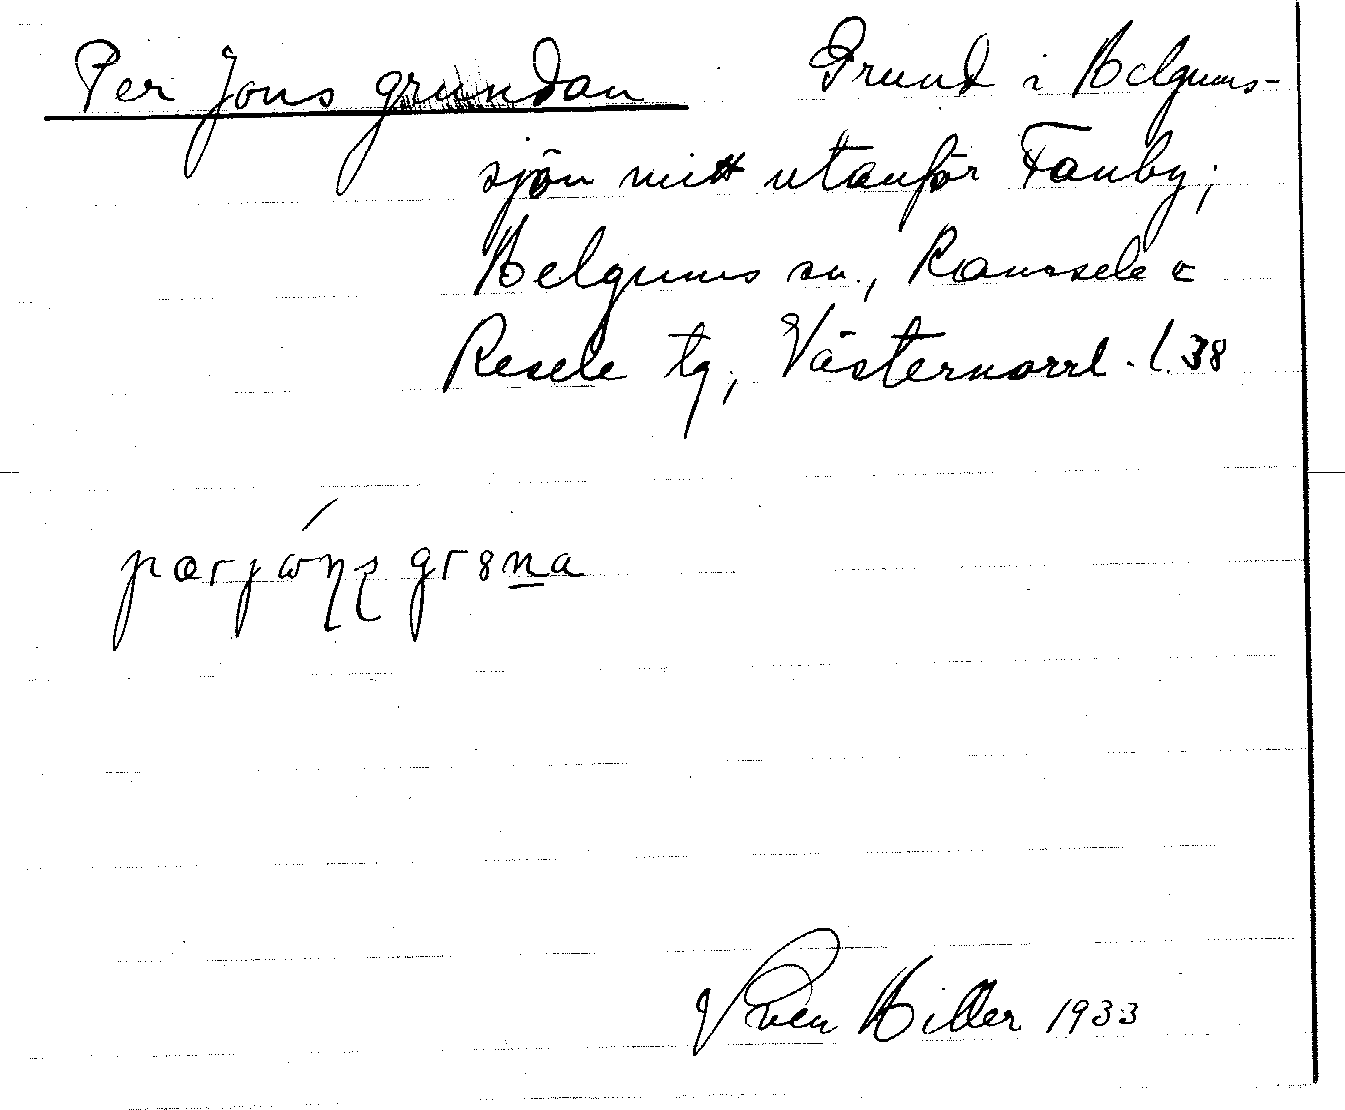 Per Jons grundan Grund i Helgums-
sjön mitt utanför Fanby;
Helgums sn., Ramsele o
Resele tg, Västernorrl. l. 38
Sven Hiller 1933